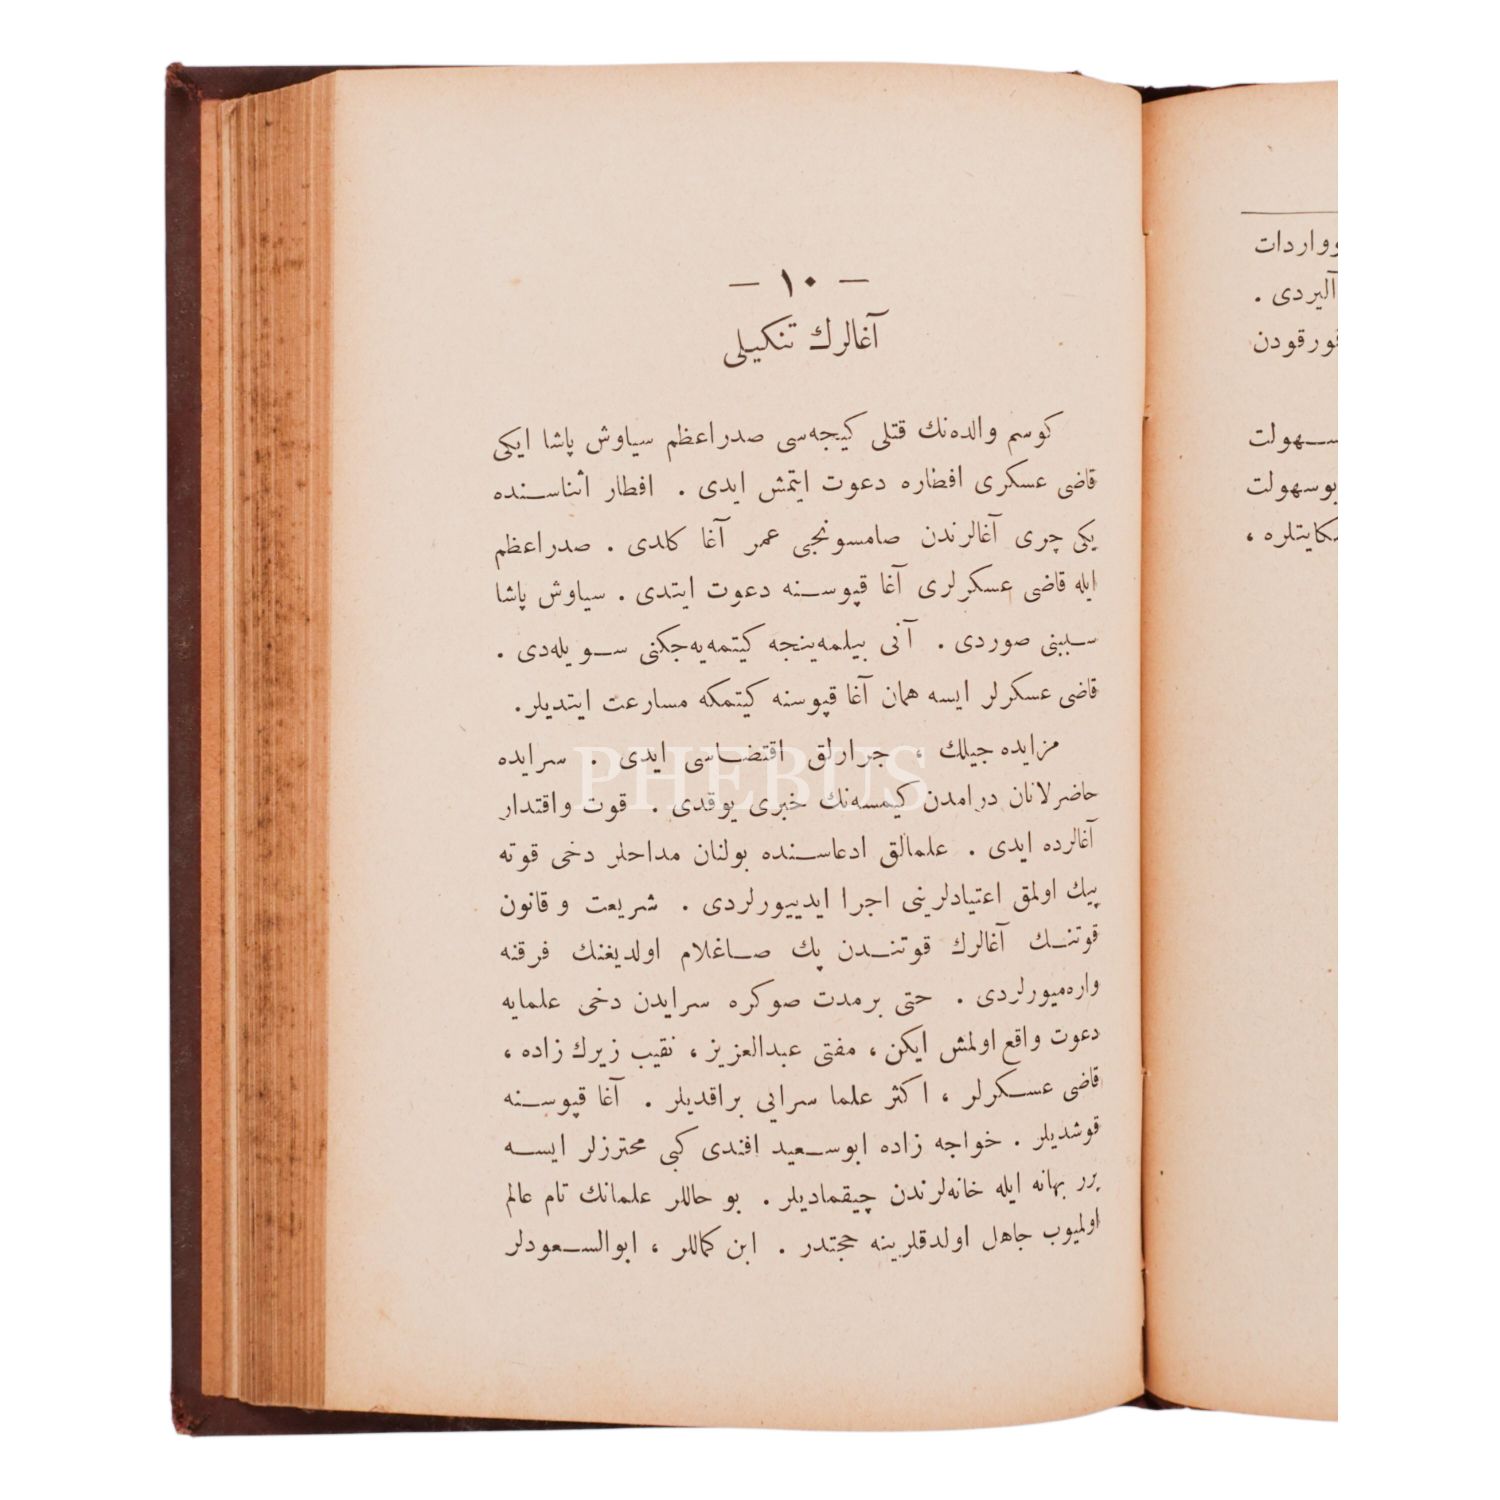 — ١٠ —
آغالرك تنكيلى
كوسم والده‌نك قتلى كيجه‌سى صدراعظم سياوش پاشا ايكى
قاضى عسكرى افطاره دعوت ايتمش ايدى . افطار اثناسنده
يكى چرى آغالرندن صامسونجى عمر آغا كلدى . صدراعظم
ايله قاضى عسكرلرى آغا قپوسنه دعوت ايتدى . سياوش پاشا
سببنى صوردى . آنى بيلمه‌ينجه كيتمه‌يه‌جكنى سويله‌دى .
قاضى عسكرلر ايسه همان آغا قپوسنه كيتمكه مسارعت ايتديلر .
مزايده جيلك ، جرارلق اقتضاسى ايدى . سرايده
حاضرلانان درامدن كيمسه‌نك خبرى يوقدى . قوت واقتدار
آغالرده ايدى . علمالق ادعاسنده بولنان مداحلر دخى قوته
پيك اولمق اعتيادلرينى اجرا ايدييورلردى . شريعت و قانون
قوتنك آغالرك قوتندن پك صاغلام اولديغنك فرقنه
واره‌ميورلردى . حتى برمدت صوكره سرايدن دخى علمايه
دعوت واقع اولمش ايكن ، مفتى عبدالعزيز ، نقيب زيرك زاده ،
قاضى عسكرلر ، اكثر علما سرايى براقديلر . آغا قپوسنه
قوشديلر . خواجه زاده ابوسعيد افندى كبى محترزلر ايسه
برر بهانه ايله خانه‌لرندن چيقماديلر . بو حاللر علمانك تام عالم
اولميوب جاهل اولدقلرينه حجتدر . ابن كماللر ، ابوالسعودلر
وواردات
آليردى .
قورقودن
سهولت
بوسهولت
شكايتلره ،
PHEBUS